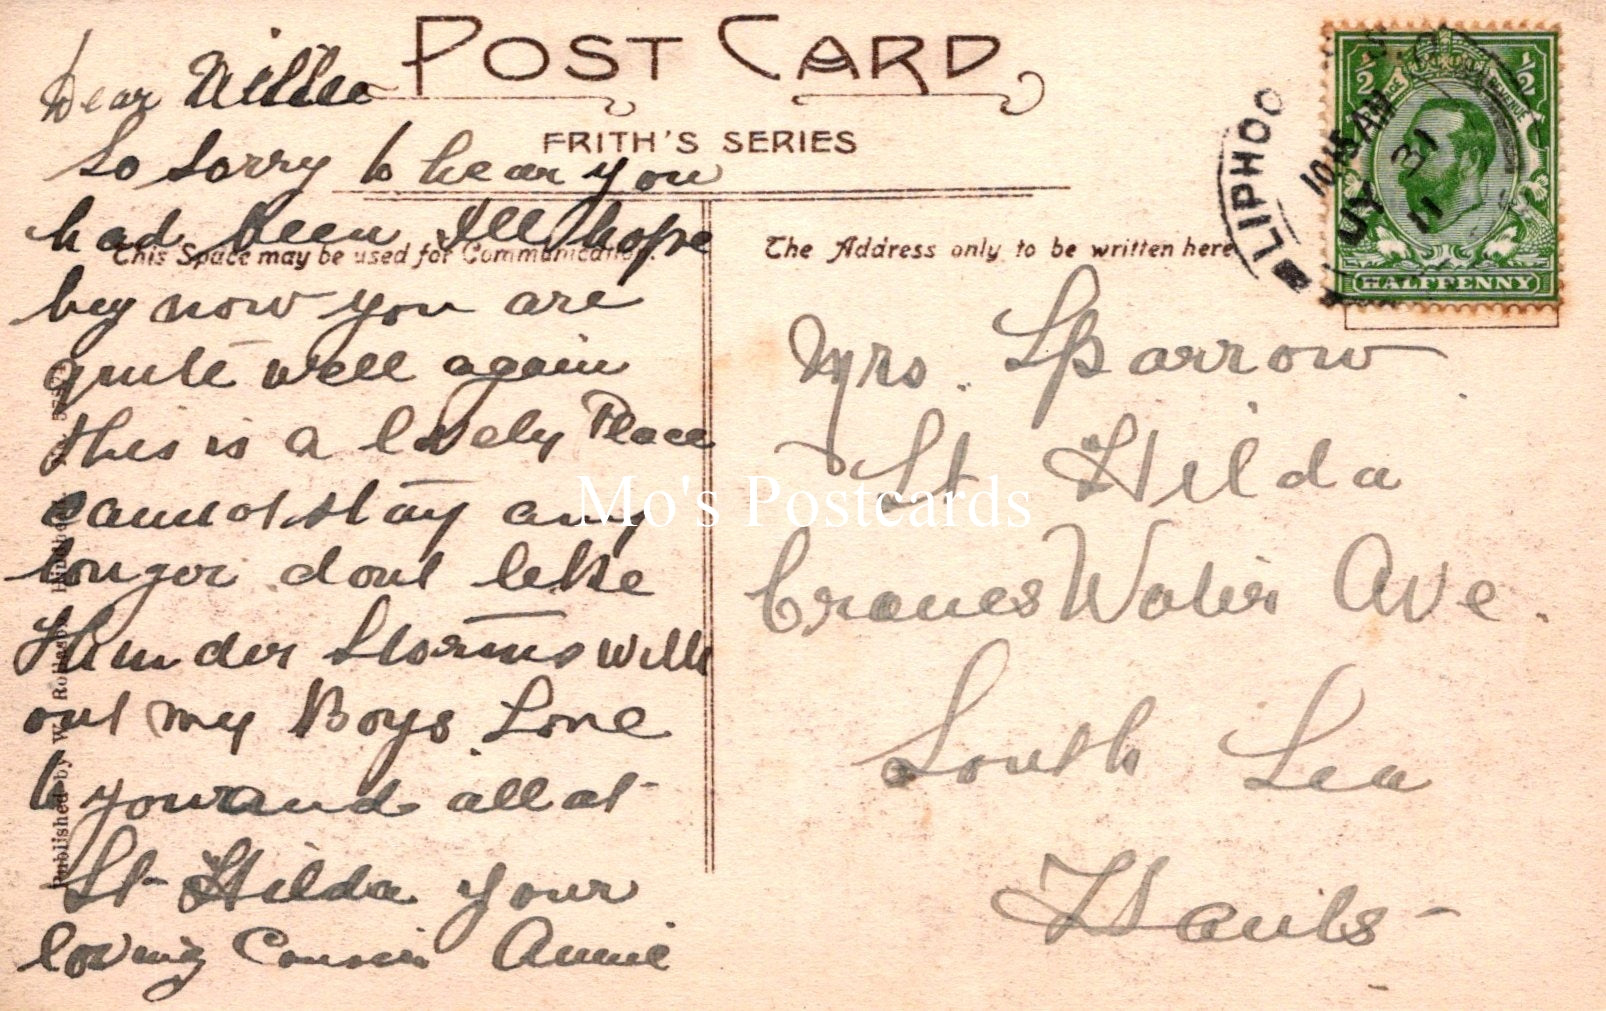 POST CARD
FRITH'S SERIES
This Space may be used for Communication.
The Address only to be written here
Dear Millie
So sorry to hear you
had been Ill hope
by now you are
quite well again
this is a lovely Place
cannot stay any
longer dont like
Thunder Storms with
out my Boys Love
to you and all at
St Hilda your
loving Cousin Annie
Mrs. Sparrow
St Hilda
Cranes Water Ave.
South Sea
Hants-
LIPHOO
10 15 AM
JY 31
11
1/2 1/2
REVENUE
HALFPENNY
Published by
Mo's Postcards